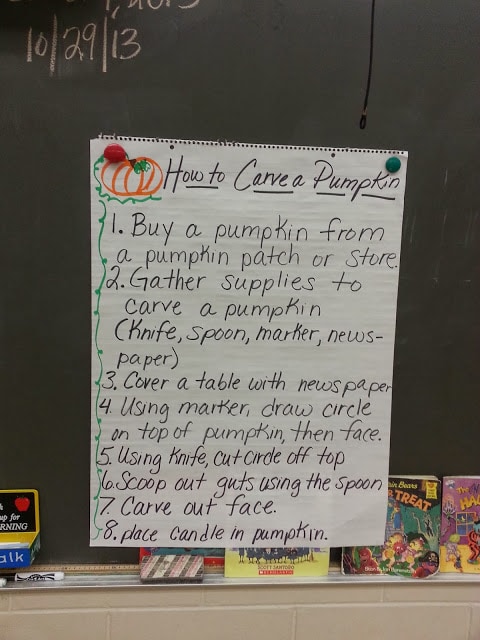 10/29/13
How to Carve a Pumpkin
1. Buy a pumpkin from
a pumpkin patch or store.
2. Gather supplies to
carve a pumpkin
(Knife, spoon, marker, news-
paper)
3. Cover a table with newspaper
4. Using marker, draw circle
on top of pumpkin, then face.
5. Using Knife, cut circle off top
6. Scoop out guts using the spoon
7. Carve out face.
8. place candle in pumpkin.
up for
alk
Bears
TREAT
SCOTT SANTORO
SCHOLASTIC
The